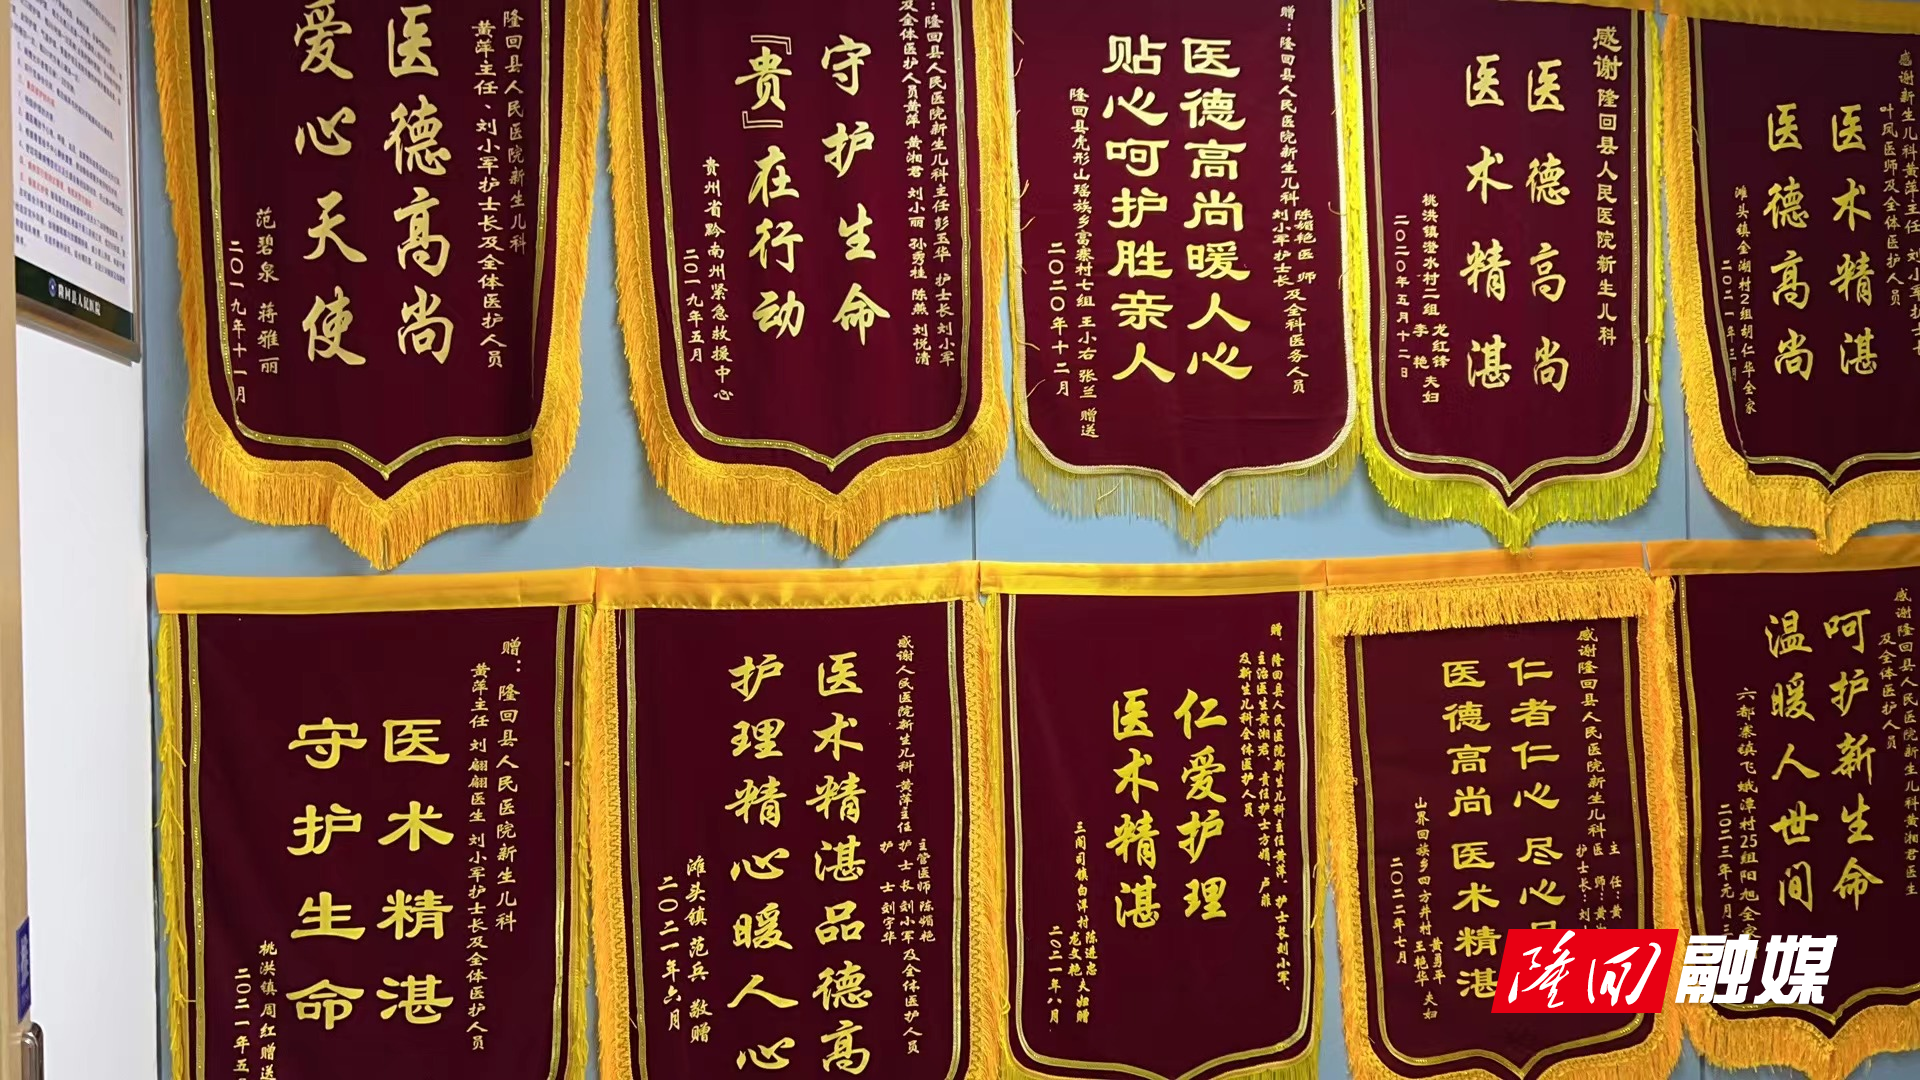 隆回县人民医院新生儿科
黄萍主任、刘小军护士长及全体医护人员
医德高尚
爱心天使
范碧泉 蒋雅丽
二〇一九年十一月
：隆回县人民医院新生儿科主任彭玉华 护士长刘小军
及全体医护人员黄萍 黄湘君 刘小丽 孙勇桂 陈燕 刘悦清
守护生命
『贵』在行动
贵州省黔南州紧急救援中心
二〇一九年五月
赠：隆回县人民医院新生儿科 陈媚艳医师 刘小军护士长 及全科医务人员
医德高尚暖人心
贴心呵护胜亲人
隆回县虎形山瑶族乡富寨村七组 王小右 张兰 赠送
二〇二〇年十二月
感谢隆回县人民医院新生儿科
医德高尚
医术精湛
桃洪镇澄水村二组 龙红锋 李艳 夫妇
二〇二〇年五月十二日
感谢新生儿科黄萍主任 刘小军护士
叶凤医师及全体医护人员
医术精湛
医德高尚
滩头镇金湖村2组胡仁华全家
二〇二一年三月
赠：隆回县人民医院新生儿科
黄萍主任 刘翩翩医生 刘小军护士长及全体医护人员
医术精湛
守护生命
桃洪镇周红赠送
二〇二一年五
感谢人民医院新生儿科 黄萍主任 主管医师 陈媚艳
护士长 刘小军及全体医护人员
护士 刘宇华
医术精湛品德高
护理精心暖人心
滩头镇 范兵 敬赠
二〇二一年六月
赠：隆回县人民医院新生儿科主任黄萍、护士长刘小军、
主治医生黄湘君、责任护士方娟、卢菲
及新生儿科全体医护人员
仁爱护理
医术精湛
三阁司镇白洋村 陈进忠 龙文艳 夫妇赠
二〇二一年八月
感谢隆回县人民医院新生儿科 主任：黄
医师：黄
护士长：刘
仁者仁心 尽心
医德高尚 医术精湛
山界回族乡四方井村 黄勇平 王艳华 夫妇
二〇二二年七月
感谢隆回县人民医院新生儿科黄湘君医生
及全体医护人员
呵护新生命
温暖人世间
六都寨镇飞蛾潭村25组阳旭全家
二〇二三年元月三
隆回县人民医院
隆回融媒